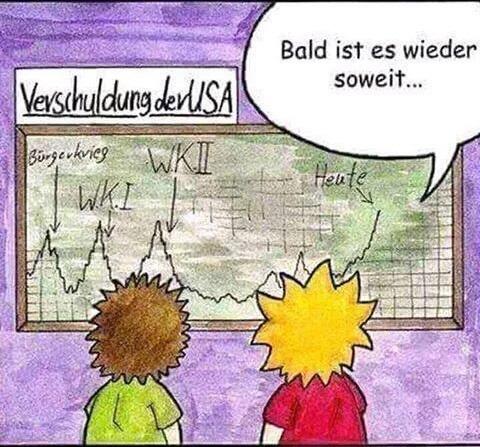 Bald ist es wieder
soweit...
Verschuldung der USA
Bürgerkrieg
WK.I
WK.II
Heute